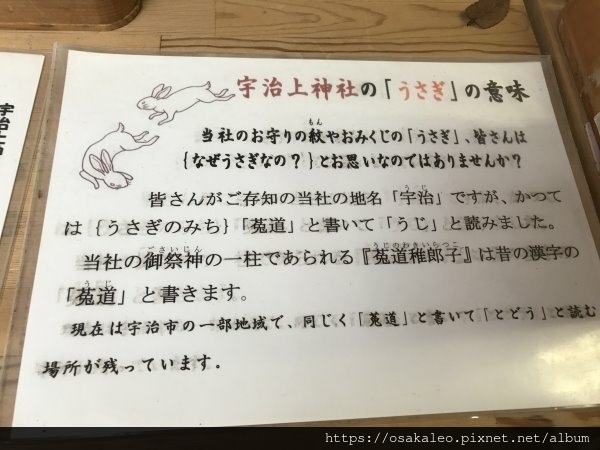 宇治上神社の「うさぎ」の意味
もん
当社のお守りの紋やおみくじの「うさぎ」、皆さんは
{なぜうさぎなの？}とお思いなのではありませんか？
うじ
皆さんがご存知の当社の地名「宇治」ですが、かつて
は{うさぎのみち}「菟道」と書いて「うじ」と読みました。
ごさいじん うじのわきいらつこ
当社の御祭神の一柱であられる『菟道稚郎子』は昔の漢字の
うじ
「菟道」と書きます。
現在は宇治市の一部地域で、同じく「菟道」と書いて「とどう」と読む
場所が残っています.
https://osakaleo.pixnet.net/album